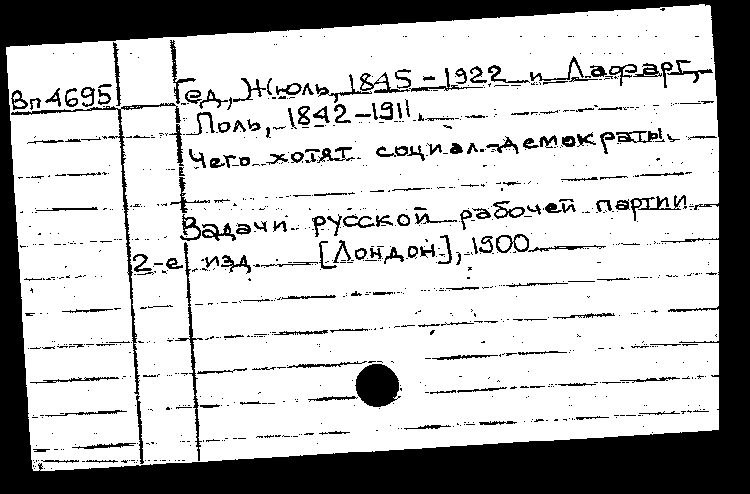 Вп4695
Гед, Жюль, 1845-1922 и Лафарг,
Поль, 1842-1911.
Чего хотят социал.-демократы.
Задачи русской рабочей партии
2-е изд. [Лондон], 1900